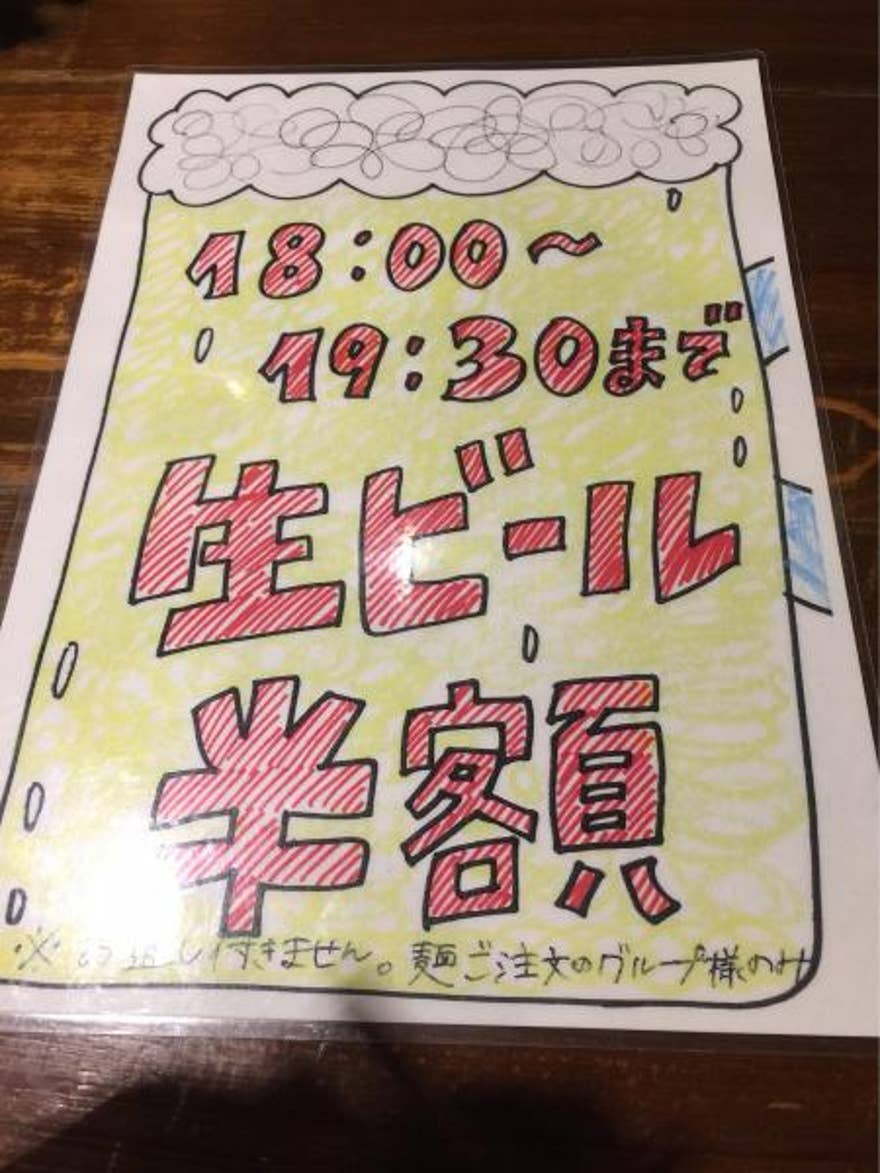 18:00～
19:30まで
生ビール
半額
※ 付きません。麺ご注文のグループ様のみ